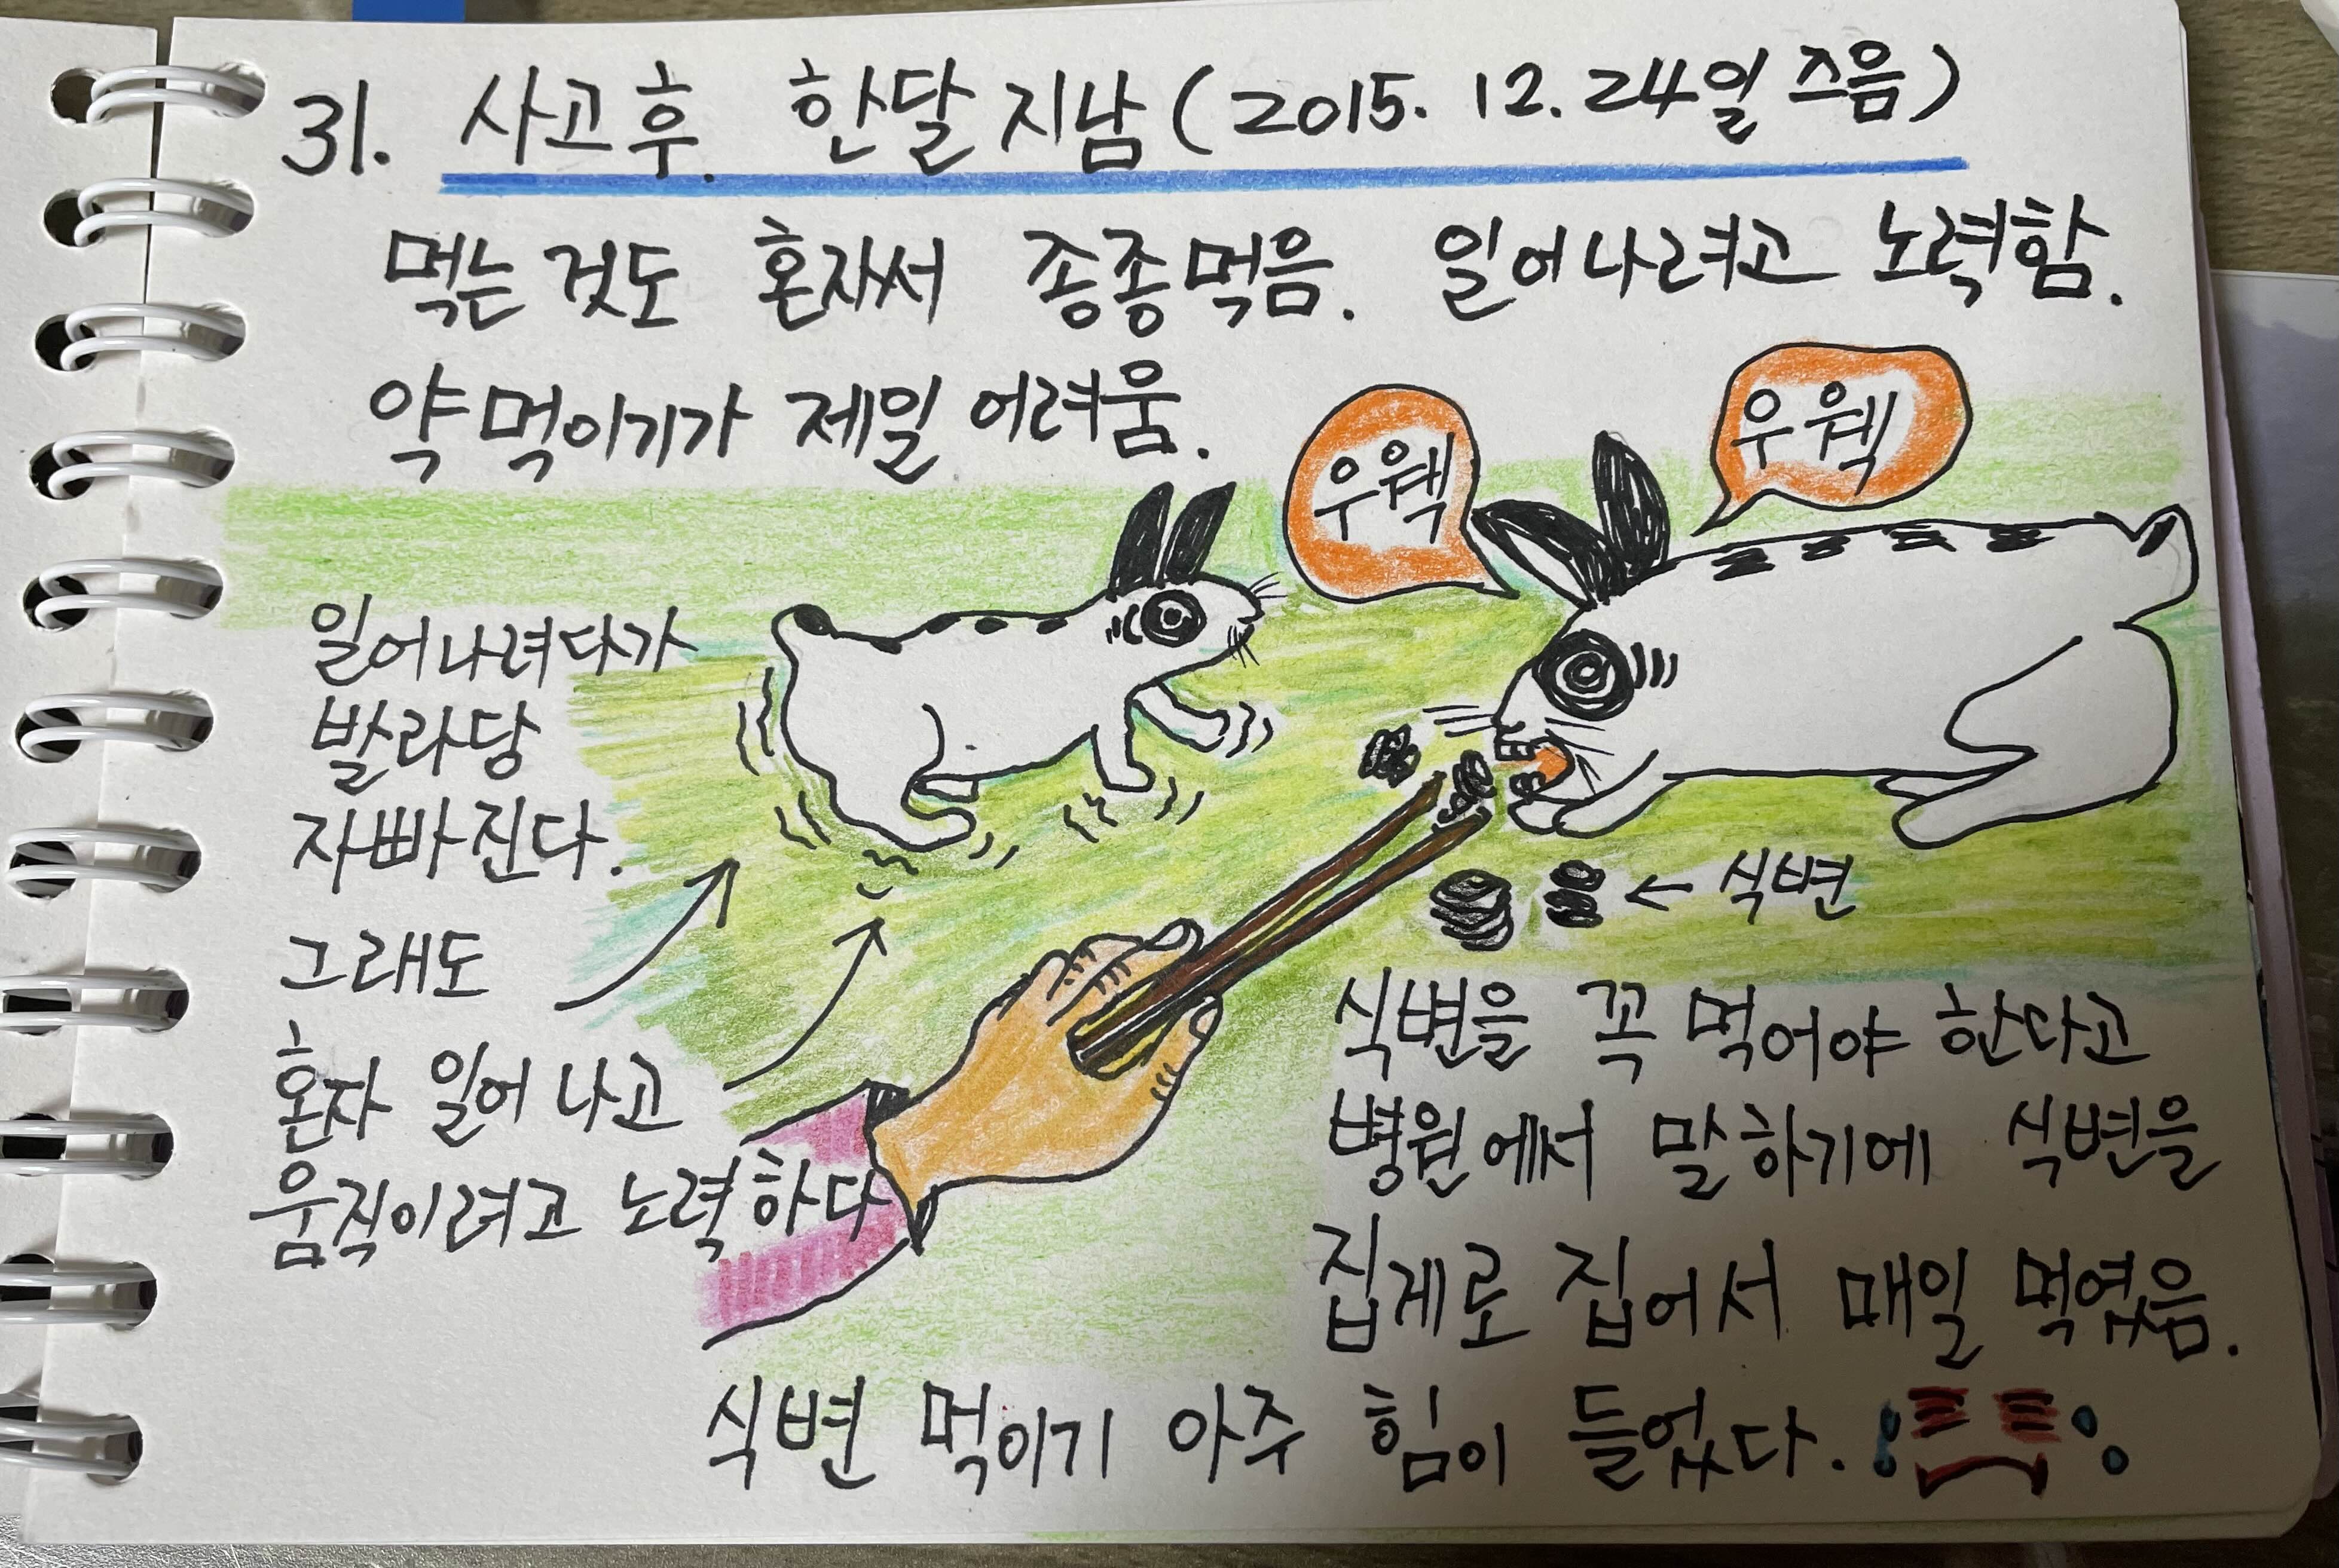 31. 사고후. 한달 지남 (2015. 12. 24일 즈음)
먹는 것도 혼자서 종종 먹음. 일어나려고 노력함.
약 먹이기가 제일 어려움.
우웩
우웩
일어나려다가
발라당
자빠진다.
그래도
혼자 일어나고
움직이려고 노력하다
← 식변
식변을 꼭 먹어야 한다고
병원에서 말하기에 식변을
집게로 집어서 매일 먹였음.
식변 먹이기 아주 힘이 들었다.